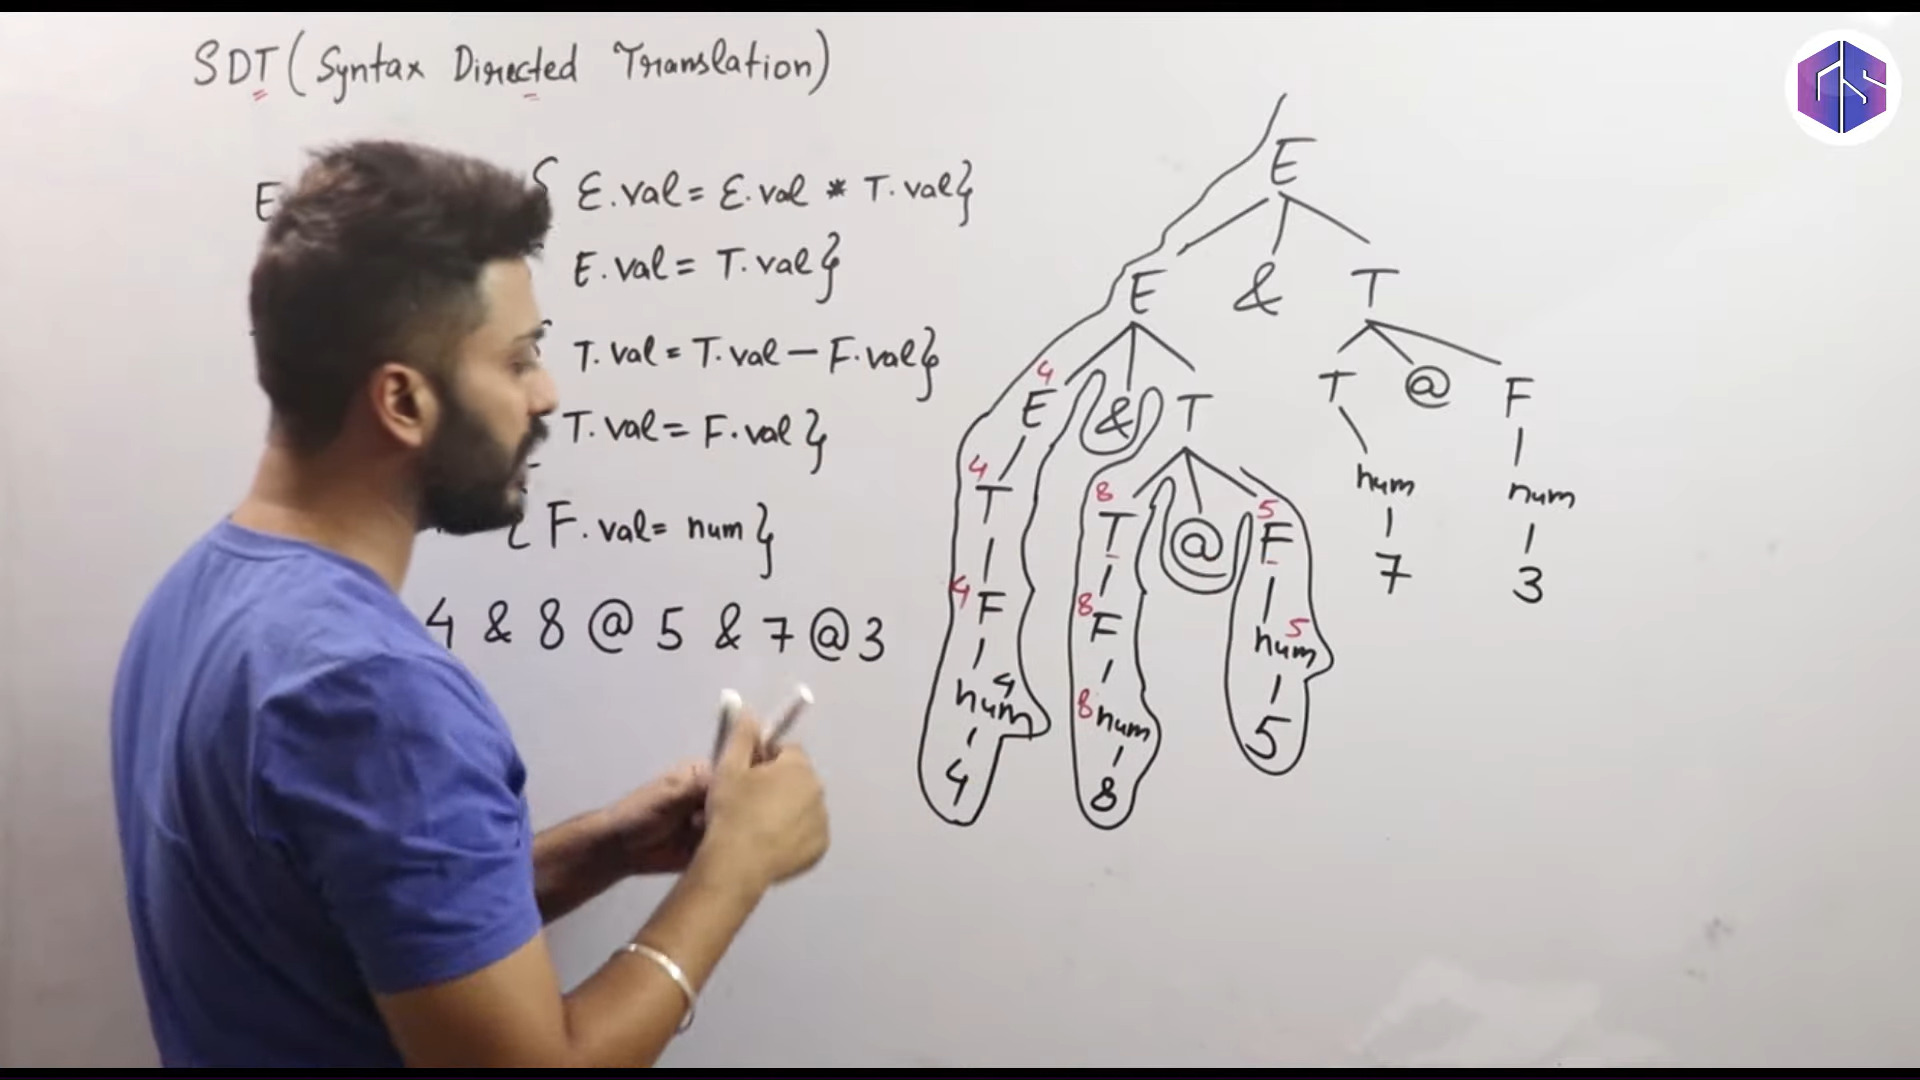 SDT (Syntax Directed Translation)
E { E.val = E.val * T.val}
E.val = T.val}
T.val = T.val - F.val}
T.val = F.val}
{ F.val = num }
4 & 8 @ 5 & 7 @ 3
E
E & T
4
E & T T @ F
4 8 5
T T @ F num num
7 3
4 8
F F num 5
4 8
num num 5
4 8
GS